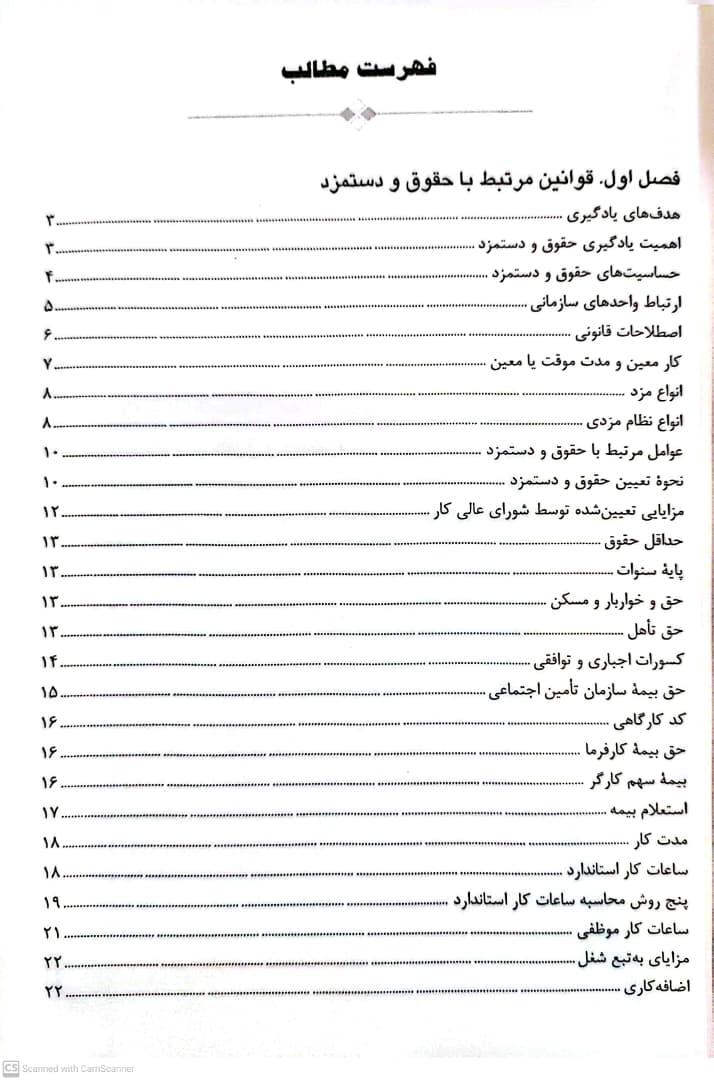 فهرست مطالب
فصل اول. قوانین مرتبط با حقوق و دستمزد
هدف‌های یادگیری ........ ۳
اهمیت یادگیری حقوق و دستمزد ........ ۳
حساسیت‌های حقوق و دستمزد ........ ۴
ارتباط واحدهای سازمانی ........ ۵
اصطلاحات قانونی ........ ۶
کار معین و مدت موقت یا معین ........ ۷
انواع مزد ........ ۸
انواع نظام مزدی ........ ۸
عوامل مرتبط با حقوق و دستمزد ........ ۱۰
نحوۀ تعیین حقوق و دستمزد ........ ۱۰
مزایایی تعیین‌شده توسط شورای عالی کار ........ ۱۲
حداقل حقوق ........ ۱۳
پایۀ سنوات ........ ۱۳
حق و خواربار و مسکن ........ ۱۳
حق تأهل ........ ۱۳
کسورات اجباری و توافقی ........ ۱۴
حق بیمۀ سازمان تأمین اجتماعی ........ ۱۵
کد کارگاهی ........ ۱۶
حق بیمۀ کارفرما ........ ۱۶
بیمۀ سهم کارگر ........ ۱۶
استعلام بیمه ........ ۱۷
مدت کار ........ ۱۸
ساعات کار استاندارد ........ ۱۸
پنج روش محاسبه ساعات کار استاندارد ........ ۱۹
ساعات کار موظفی ........ ۲۱
مزایای به‌تبع شغل ........ ۲۲
اضافه‌کاری ........ ۲۲
CS Scanned with CamScanner